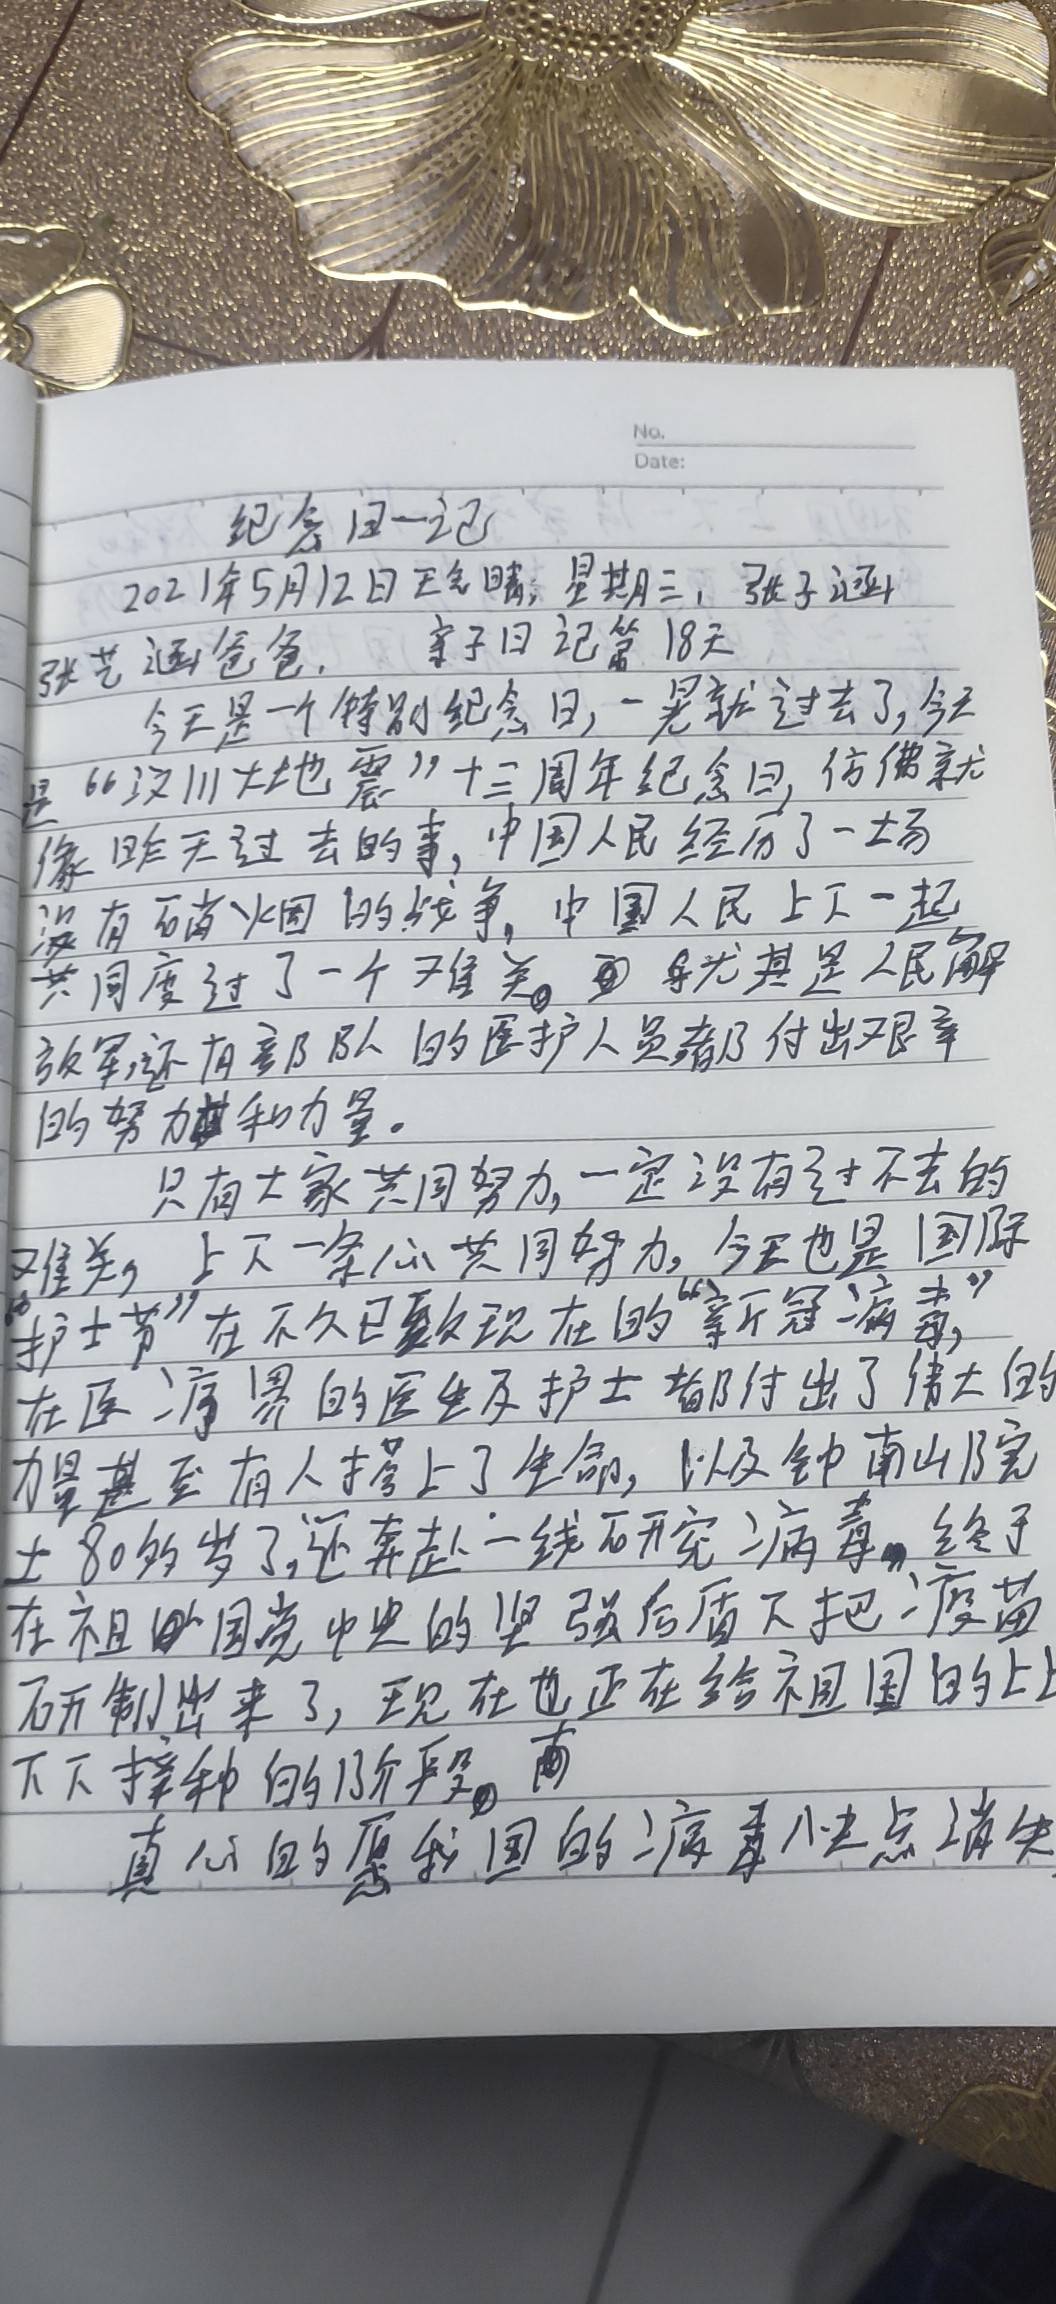 No.
Date:
纪念日一记
2021年5月12日天气晴,星期三,张子涵
张艺涵爸爸. 亲子日记第18天
今天是一个特别纪念日,一晃就过去了,今天
是“汶川大地震”十三周年纪念日,仿佛就
像昨天过去的事,中国人民经历了一场
没有硝烟的战争,中国人民上下一起
共同度过了一个难关。尤其是人民解
放军,还有部队的医护人员都付出艰辛
的努力和力量。
只有大家共同努力,一定没有过不去的
难关,上下一条心共同努力,今天也是国际
“护士节”在不久已致现在的“新冠病毒,”
在医疗界的医生及护士都付出了伟大的
力量甚至有人搭上了生命,以及钟南山院
士80多岁了,还奔赴一线研究病毒,终于
在祖国党中央的坚强后盾下把疫苗
研制出来了,现在也正在给祖国的上上
下下接种的阶段。
真心的愿我国的病毒快点消失